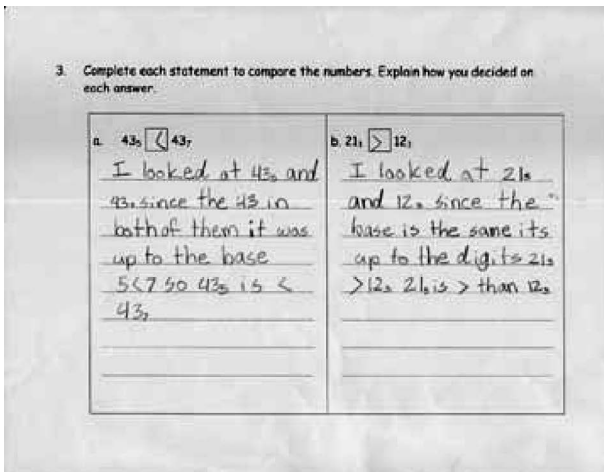 3. Complete each statement to compare the numbers. Explain how you decided on
each answer.
a. 43₅ < 43₇
I looked at 43₅ and
43₇ since the 43 in
both of them it was
up to the base
5<7 so 43₅ is <
43₇
b. 21₃ > 12₃
I looked at 21₃
and 12₃ since the
base is the same its
up to the digits 21₃
>12₃ 21₃ is > than 12₃